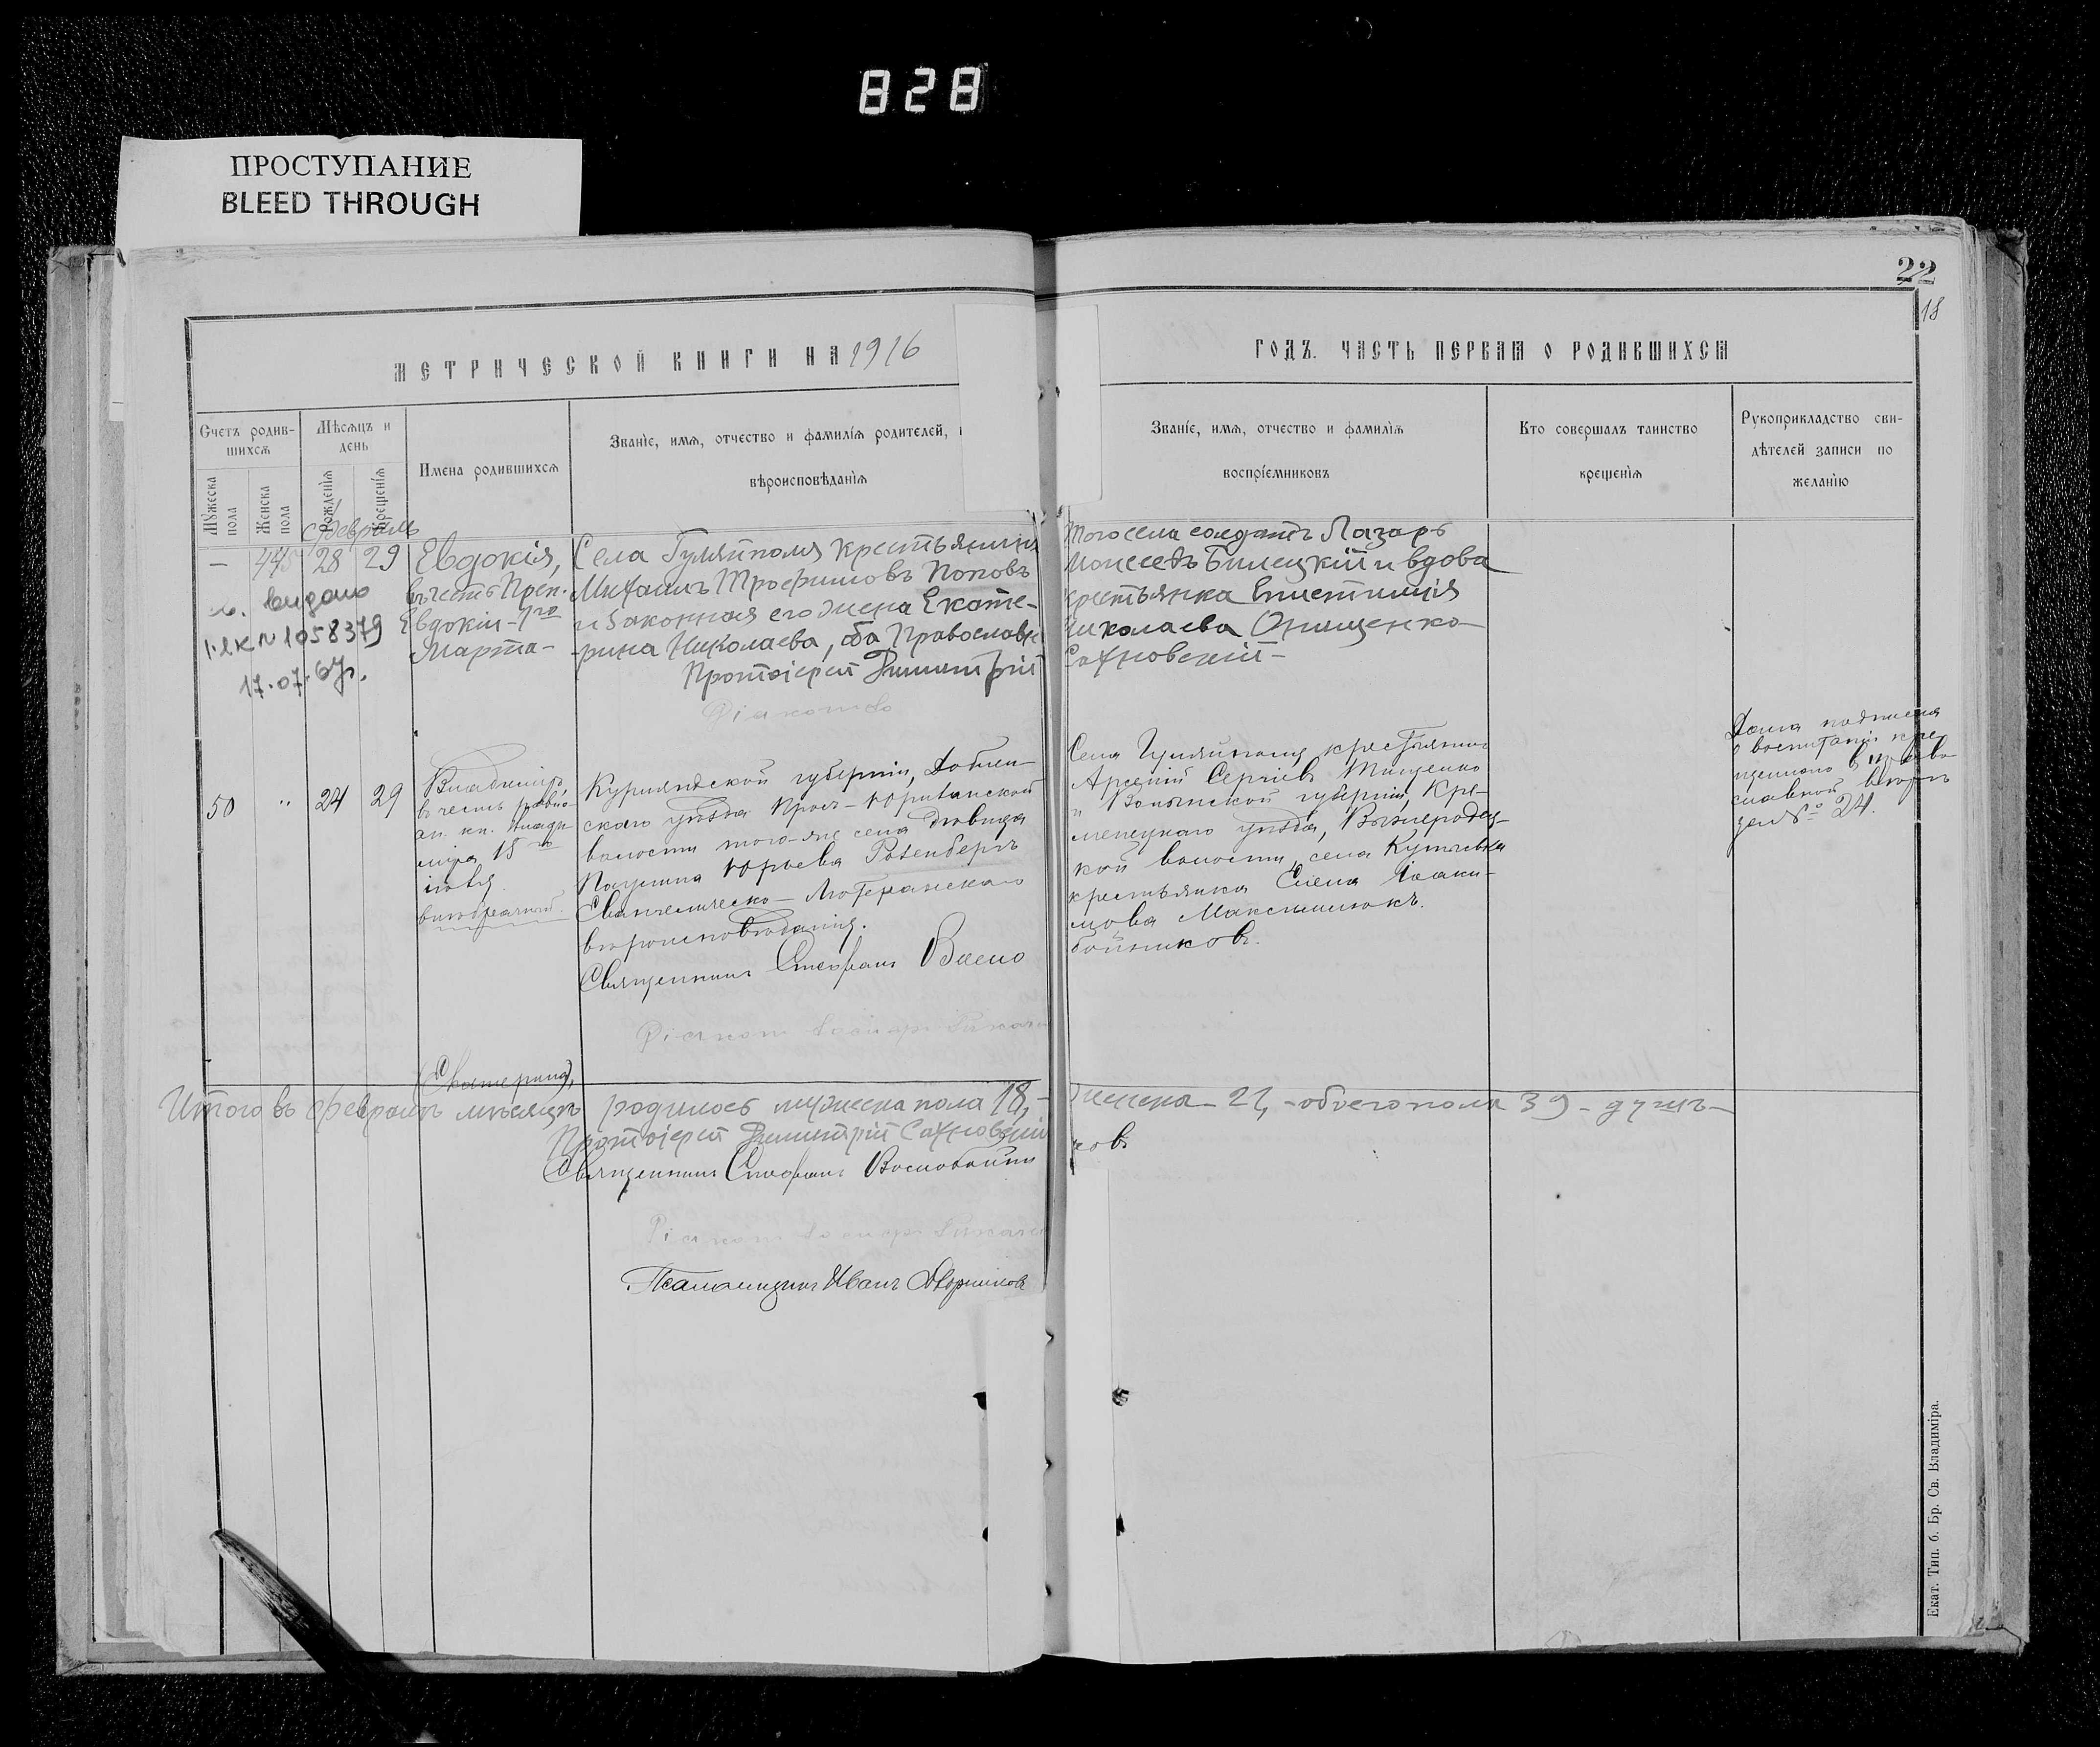 828
ПРОСТУПАНИЕ
BLEED THROUGH
22
18
МЕТРИЧЕСКОЙ КНИГИ НА 1916
ГОДЪ. ЧАСТЬ ПЕРВАЯ О РОДИВШИХСЯ
Счетъ родив-
шихся
Мужеска
пола
Женска
пола
Мѣсяцъ и
день
Рожденія
Крещенія
Имена родившихся
Званіе, имя, отчество и фамилія родителей,
вѣроисповѣданія
Званіе, имя, отчество и фамилія
воспріемниковъ
Кто совершалъ таинство
крещенія
Рукоприкладство сви-
дѣтелей записи по
желанію
Февраль
28 29
Евдокія,
въ честь Преп.
Евдокіи - 1го
Марта -
выдано
№ 1058379
17.07.
Села Гуляйполя крестьянинъ
Михаилъ Трофимовъ Поповъ
и законная его жена Екате-
рина Николаева, оба Православн
Протоіерей Димитрій
Того села солдатъ Лазарь
Моисеевъ Билецкій и вдова
крестьянка
Николаева Онищенко
Сахновскій -
Діаконъ
50 " 24 29
Владиміръ,
въ честь равно
ап. кн. Влади
міра 15го
іюля.
внѣбрачный.
Курляндской губерніи, Доблен-
скаго уѣзда
волости того-же села
Паулина Юрьева Розенбергъ
Евангелическо-Лютеранскаго
вѣроисповѣданія.
Священникъ Стефанъ Воско
Села Гуляйполя крестьянинъ
Арсеній Сергіевъ Тищенко
и Волынской губерніи, Кре-
менецкаго уѣзда, Вышегродец-
кой волости, села
крестьянка Елена Іоаки-
мова Максимюкъ.
бойниковъ.
Дана подписка
о воспитаніи кре
щеннаго въ право
славной вѣрѣ
за № 24.
Діаконъ
(Екатерина),
Итого въ Февралѣ мѣсяцѣ родилось мужеска пола 18, -
женска - 21, - обоего пола 39 - душъ -
Протоіерей Димитрій Сахновскій
Священникъ Стефанъ Воскобойни
ковъ
Діаконъ
Псаломщикъ Иванъ Дворниковъ
Екат. Тип. б. Бр. Св. Владиміра.